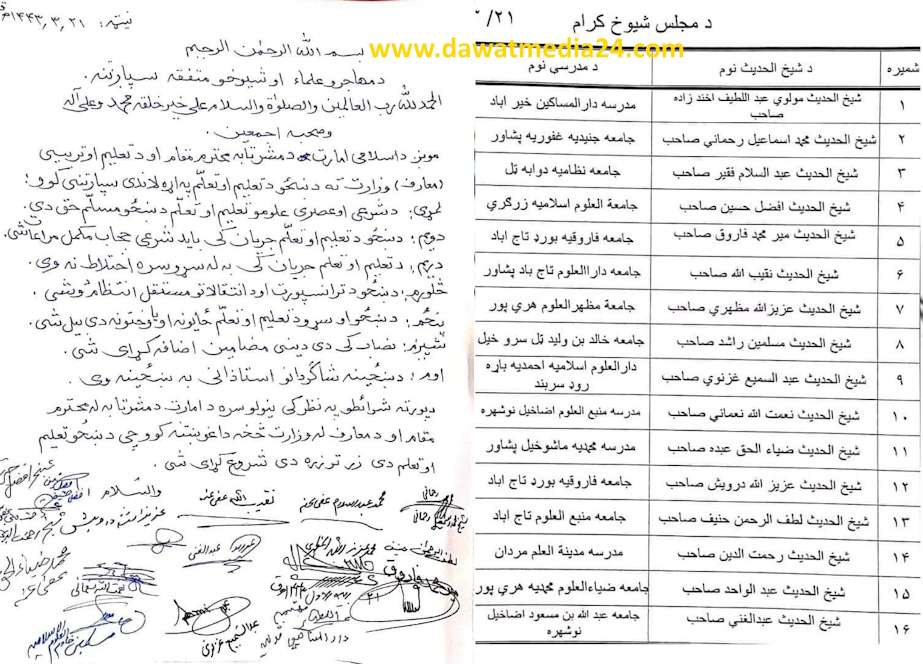 نیټه: ۱۴۴۳٫۳٫۲۱
بسم الله الرحمن الرحیم
د مهاجرو علماء او شیوخو متفقه سپارښتنه.
الحمدلله رب العالمین والصلوٰة والسلام علی خیر خلقه محمد وعلی آله
وصحبه اجمعین.
موږ د اسلامي امارت د مشرتابه محترم مقام او د تعلیم او تربیې
(معارف) وزارت ته د ښځو د تعلیم او تعلّم په اړه لاندې سپارښتنې کوو:
لمړی: د شرعي او عصري علومو تعلیم او تعلّم د ښځو مسلّم حق دی.
دویم: د ښځو د تعلیم او تعلّم جریان کې باید شرعي حجاب مکمل مراعات شي.
دریم: د تعلیم او تعلم جریان کې به له سړو سره اختلاط نه وي.
څلورم: د ښځو د ترانسپورت او د انتقالاتو مستقل انتظام وشي.
پنځم: د ښځو او سړو د تعلیم او تعلّم ځایونه او یا وختونه دې بیل شي.
شپږم: نصاب کې دې دیني مضامین اضافه کړای شي.
اوم: د ښځینه شاگردانو استاذانې به ښځینه وي.
دپورته شرائطو په نظر کې نیولو سره د امارت د مشرتابه له محترم
مقام او د معارف له وزارت څخه دا غوښتنه کوو چې د ښځو تعلیم
او تعلم دې زر تر زره دې شروع کړای شي.
والسّلام
نقیب الله عفی عنه
محمد عبدالسلام عفی عنه
عبدالغنی
www.dawatmedia24.com
/۲۱
د مجلس شیوخ کرام
شمیره د شیخ الحدیث نوم د مدرسې نوم
۱ شیخ الحدیث مولوي عبد اللطیف اخند زاده صاحب مدرسه دارالمساکین خیر اباد
۲ شیخ الحدیث محمد اسماعیل رحماني صاحب جامعه جنیدیه غفوریه پشاور
۳ شیخ الحدیث عبد السلام فقیر صاحب جامعه نظامیه دوابه ټل
۴ شیخ الحدیث افضل حسین صاحب جامعة العلوم اسلامیه زرګري
۵ شیخ الحدیث میر محمد فاروق صاحب جامعه فاروقیه بورډ تاج اباد
۶ شیخ الحدیث نقیب الله صاحب جامعه داراالعلوم تاج باد پشاور
۷ شیخ الحدیث عزیزالله مظهري صاحب جامعة مظهرالعلوم هري پور
۸ شیخ الحدیث مسلمین راشد صاحب جامعه خالد بن ولید ټل سرو خیل
۹ شیخ الحدیث عبد السمیع غزنوي صاحب دارالعلوم اسلامیه احمدیه باړه روډ سربند
۱۰ شیخ الحدیث نعمت الله نعماني صاحب مدرسه منبع العلوم اضاخیل نوشهره
۱۱ شیخ الحدیث ضیاء الحق عبده صاحب مدرسه محمدیه ماشوخیل پشاور
۱۲ شیخ الحدیث عزیز الله درویش صاحب جامعه فاروقیه بورډ تاج اباد
۱۳ شیخ الحدیث لطف الرحمن حنیف صاحب جامعه منبع العلوم تاج اباد
۱۴ شیخ الحدیث رحمت الدین صاحب مدرسه مدینة العلم مردان
۱۵ شیخ الحدیث عبد الواحد صاحب جامعه ضیاءالعلوم محمدیه هري پور
۱۶ شیخ الحدیث عبدالغني صاحب جامعه عبد الله بن مسعود اضاخیل نوشهره